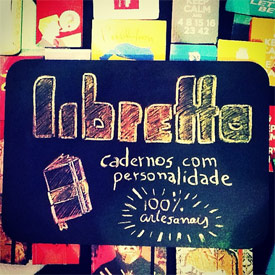 KEEP
CALM
4 8 15 16
23 42
libretto
cadernos com
personalidade
100%
artesanais